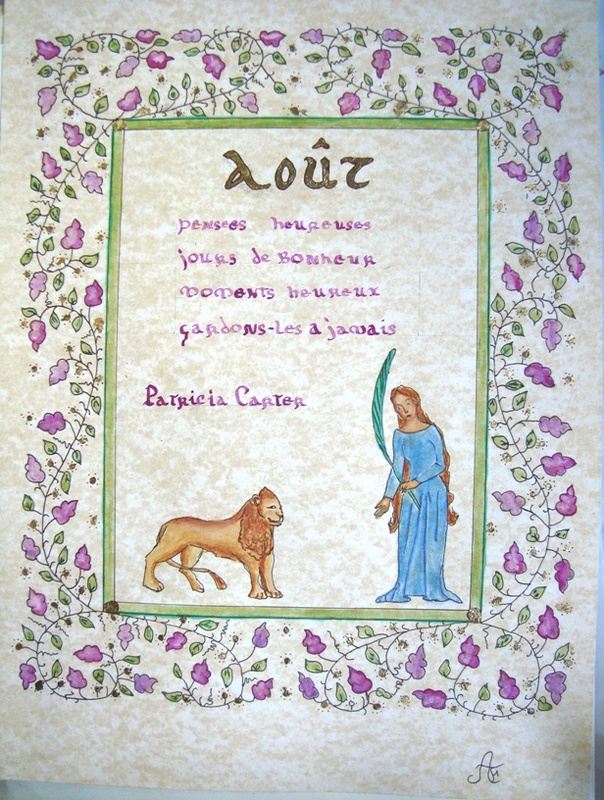 Août
pensées heureuses
jours de bonheur
moments heureux
gardons-les a jamais
Patricia Carter